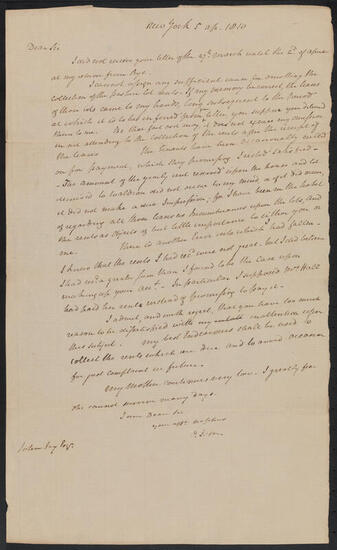 New York 5 ap. 1810
Dear Sir
I did not receive your letter of the 27th March until the 2d of April
at my return from Rye.
I cannot assign any sufficient cause for omitting the
collection of the lot rents. If my memory is correct, the leases
of those lots came to my hands, long subsequent to the
at which it is to be inferred from your letter, you suppose you delivered
them to me. Be that fact as it may, it does not excuse my omission
in not attending to the collection of the rents after the receipt of
the leases The tenants have been occasionally called
on for payment, which they promising I rested satisfied
The amount of the yearly rent reserved upon the house and lot
demised to Waldron did not occur to my mind, or if it did occur,
it did not make a due impression, for I have been in the habit
of regarding all those leases as incumbrances upon the lots, and
the rents as objects of but little importance to either you or
me. There is another late rule which I had fallen
I knew that the rents I had recd. were not great, but I did believe
I had recd a greater sum than I found to be the case upon
making up your acct. In particular I supposed Mrs Hall
had paid her rents instead of promising to pay it.
I admit, and with regret, that you have too much
reason to be dissatisfied with my inattention upon
this subject. My best Endeavours shall be used to
collect the rents which are due and to avoid occasion
for just complaint in future.
My Mother continues very low. I greatly fear
she cannot survive many days.
I am Dear Sir
your afft. nephew
P. Jay
John Jay Esqr.